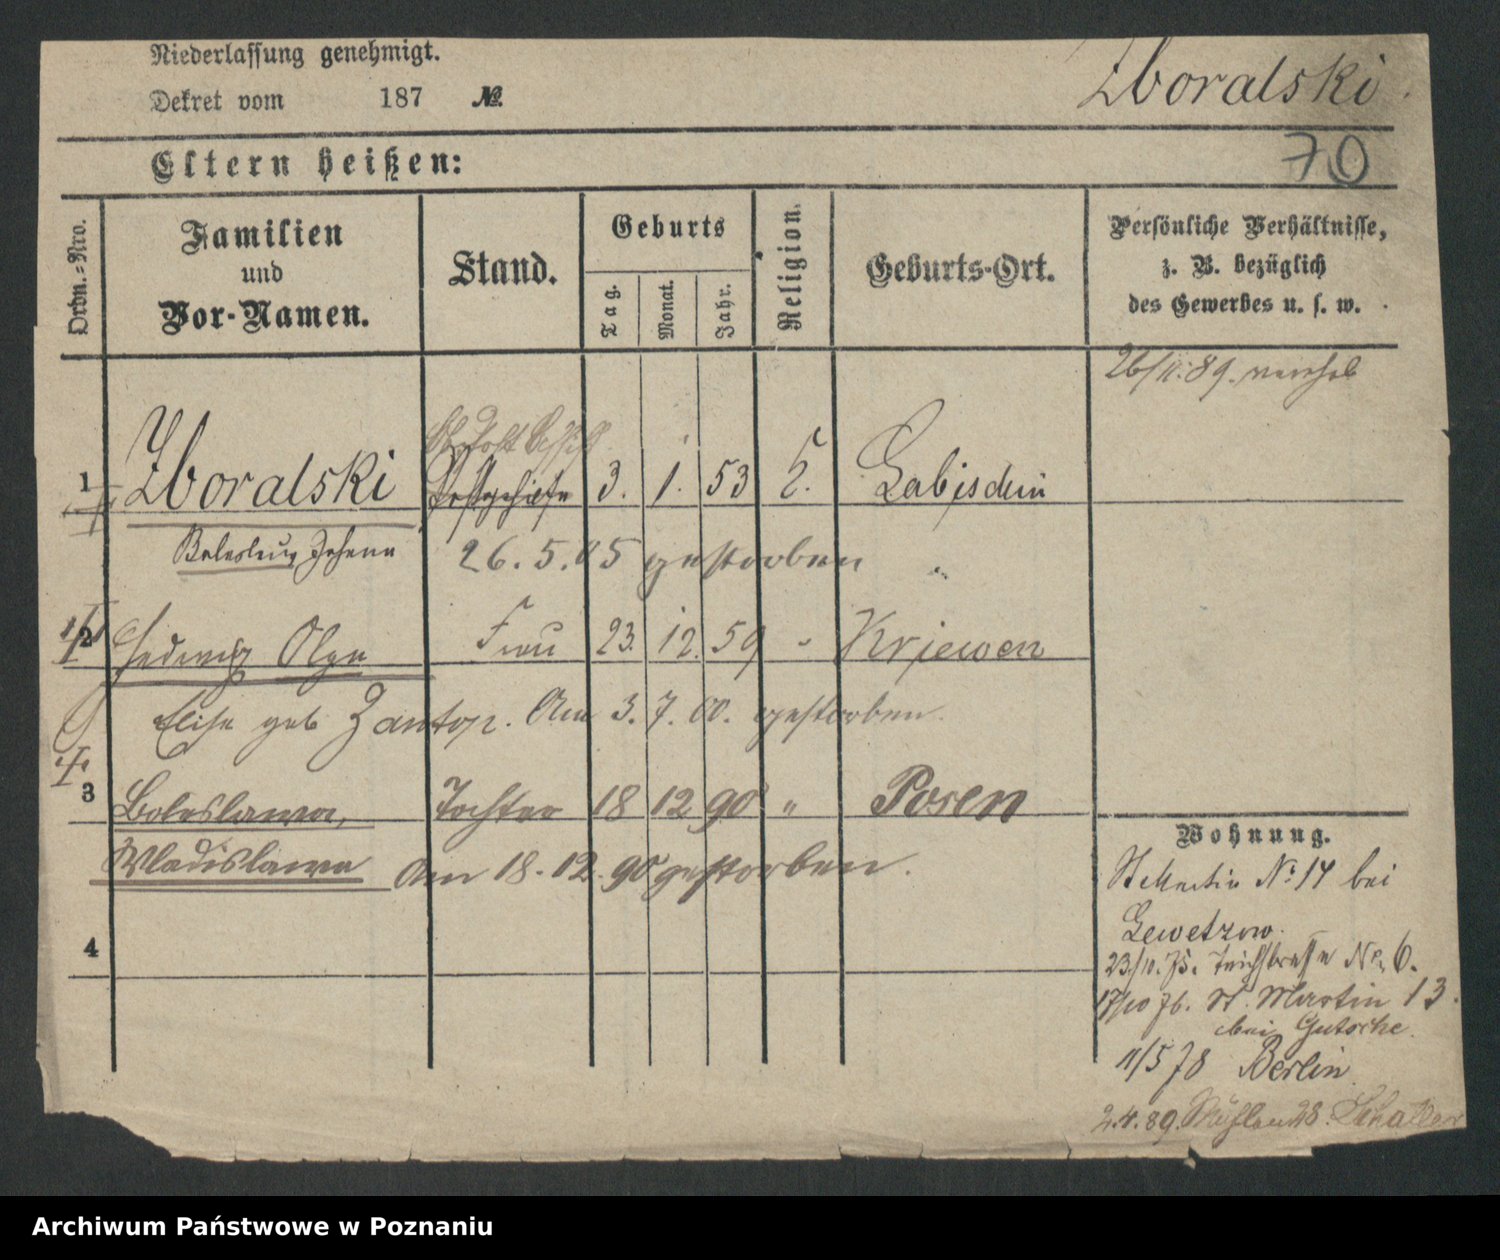 Niederlassung genehmigt.
Zboralski
Dekret vom 187 №
70
Eltern heißen:
Ordn.-Nro.
Familien und Vor-Namen.
Stand.
Geburts
Tag.
Monat.
Jahr.
Religion.
Geburts-Ort.
Persönliche Verhältnisse,
z. B. bezüglich
des Gewerbes u. s. w.
26/11.89.
1 Zboralski 3. 1. 53 Labischin
Boleslaus Johann 26. 5. 05 gestorben
2 Hedwig Olga Frau 23. 12. 59 " Krjewen
Elise geb Zantop. Am 3. 7. 00. gestorben.
3 Boleslawa, Tochter 18 12 90 " Posen
Wladislawa Am 18. 12. 90 gestorben.
4
Wohnung.
St Martin No 14 bei
Gewetzow.
23/11. 75. Teichstrasse No 6.
17/10 76. St. Martin 13.
bei Gutsche.
11/5 78 Berlin
2.4.89. Mühlen 28.
Archiwum Państwowe w Poznaniu